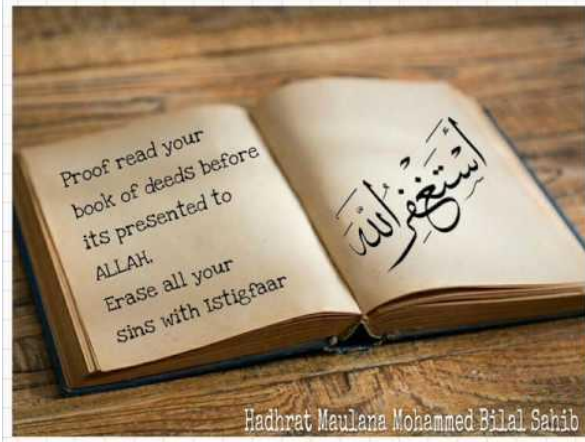 Proof read your
book of deeds before
its presented to
ALLAH.
Erase all your
sins with Istigfaar
أَسْتَغْفِرُ اللّٰه
Hadhrat Maulana Mohammed Bilal Sahib